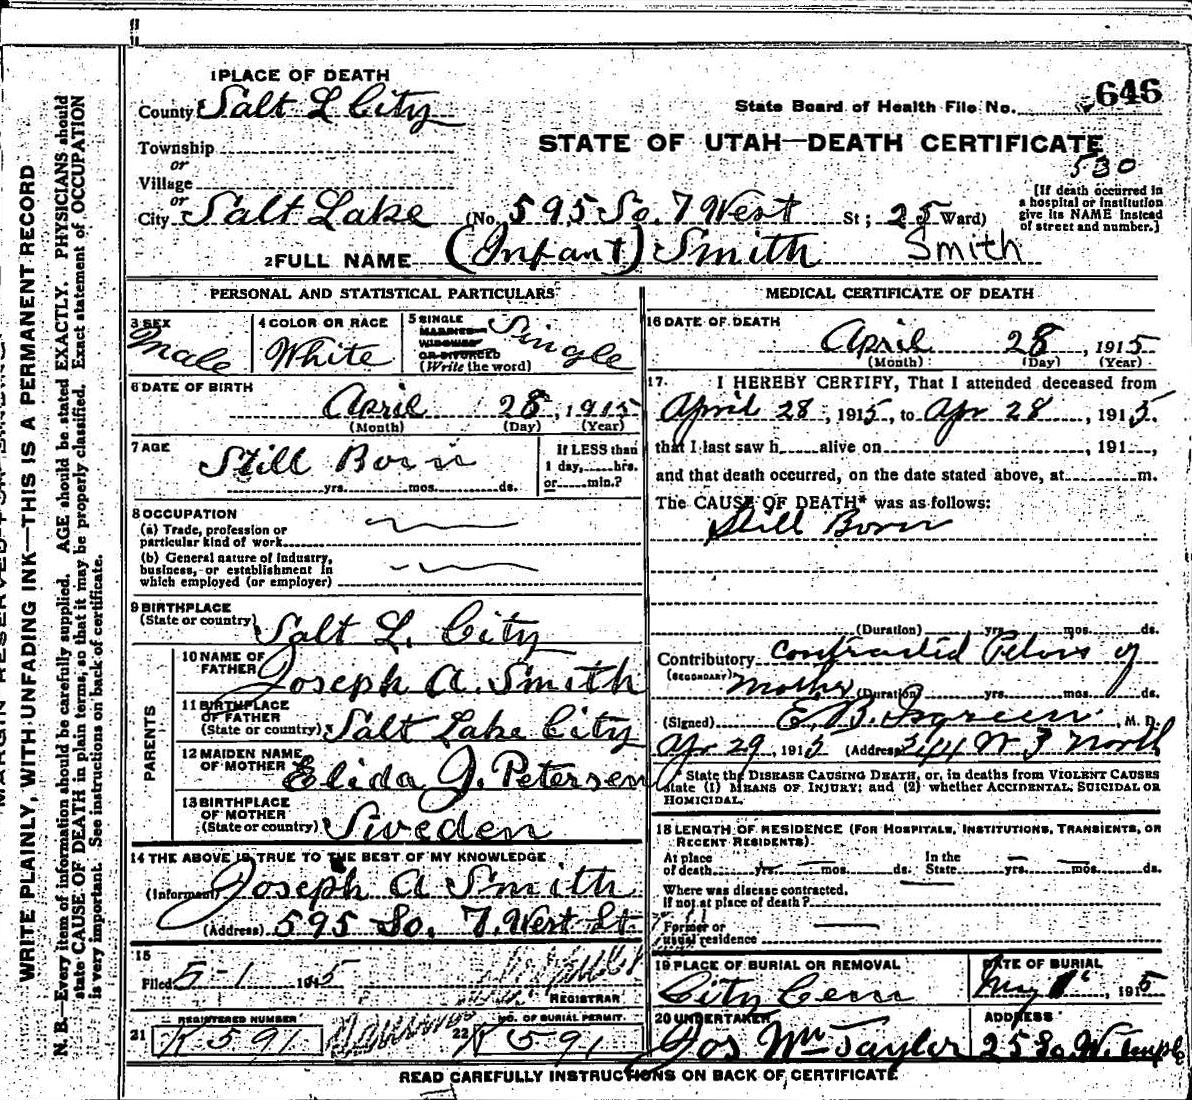 1 PLACE OF DEATH
County Salt L City
State Board of Health File No. 646
Township
STATE OF UTAH—DEATH CERTIFICATE
or
530
Village
or
City Salt Lake (No. 595 So. 7 West St; 25 Ward)
[If death occurred in
a hospital or institution
give its NAME instead
of street and number.]
2 FULL NAME (Infant) Smith Smith
PERSONAL AND STATISTICAL PARTICULARS
3 SEX
Male
4 COLOR OR RACE
White
5 SINGLE
MARRIED
WIDOWED
OR DIVORCED
(Write the word)
Single
6 DATE OF BIRTH
April 28, 1915
(Month) (Day) (Year)
7 AGE
Still Born
yrs. mos. ds.
If LESS than
1 day, hrs.
or min.?
8 OCCUPATION
(a) Trade, profession or
particular kind of work
(b) General nature of industry,
business, or establishment in
which employed (or employer)
9 BIRTHPLACE
(State or country) Salt L. City
PARENTS
10 NAME OF
FATHER Joseph A. Smith
11 BIRTHPLACE
OF FATHER
(State or country) Salt Lake City
12 MAIDEN NAME
OF MOTHER Elida J. Petersen
13 BIRTHPLACE
OF MOTHER
(State or country) Sweden
14 THE ABOVE IS TRUE TO THE BEST OF MY KNOWLEDGE
(Informant) Joseph A Smith
(Address) 595 So. 7. West St.
15
Filed 5-1 1915
REGISTRAR
21 REGISTERED NUMBER
K 591
22 NO. OF BURIAL PERMIT.
K 591
MEDICAL CERTIFICATE OF DEATH
16 DATE OF DEATH
April 28, 1915
(Month) (Day) (Year)
17. I HEREBY CERTIFY, That I attended deceased from
April 28, 1915, to Apr 28, 1915.
that I last saw h alive on , 191 ,
and that death occurred, on the date stated above, at m.
The CAUSE OF DEATH* was as follows:
Still Born
(Duration) yrs. mos. ds.
Contributory Contracted Pelvis of
(SECONDARY) Mother (Duration) yrs. mos. ds.
(Signed) E. B. Isgreen, M. D.
Apr 29, 1915 (Address) 344 W 3 North
*State the DISEASE CAUSING DEATH, or, in deaths from VIOLENT CAUSES
state (1) MEANS OF INJURY; and (2) whether ACCIDENTAL, SUICIDAL OR
HOMICIDAL.
18 LENGTH OF RESIDENCE (FOR HOSPITALS, INSTITUTIONS, TRANSIENTS, OR
RECENT RESIDENTS).
At place
of death yrs. mos. ds.
In the
State yrs. mos. ds.
Where was disease contracted,
if not at place of death?
Former or
usual residence
19 PLACE OF BURIAL OR REMOVAL
City Cem
DATE OF BURIAL
May 1, 1915
20 UNDERTAKER
Jos Wm Taylor
ADDRESS
25 So. W. Temple
READ CAREFULLY INSTRUCTIONS ON BACK OF CERTIFICATE
WRITE PLAINLY, WITH UNFADING INK—THIS IS A PERMANENT RECORD
N. B.—Every item of information should be carefully supplied. AGE should be stated EXACTLY. PHYSICIANS should
state CAUSE OF DEATH in plain terms, so that it may be properly classified. Exact statement of OCCUPATION
is very important. See instructions on back of certificate.